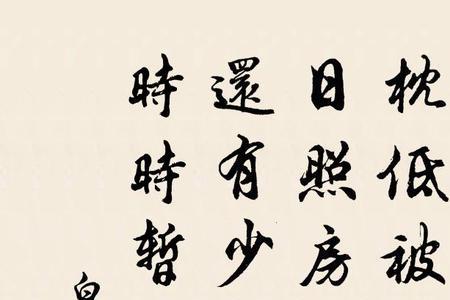 枕低被
日照房
還有少
時時暫